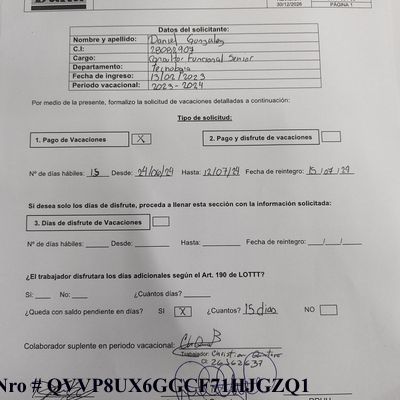 30/12/2026 PÁGINA 1
Datos del solicitante:
Nombre y apellido: Daniel Gonzalez
C.I: 28082907
Cargo: Consultor Funcional Senior
Departamento: Tecnología
Fecha de ingreso: 13/02/2023
Periodo vacacional: 2023-2024
Por medio de la presente, formalizo la solicitud de vacaciones detalladas a continuación:
Tipo de solicitud:
1. Pago de Vacaciones X 2. Pago y disfrute de vacaciones
Nº de días hábiles: 15 Desde: 24/06/24 Hasta: 12/07/24 Fecha de reintegro: 15/07/24
Si desea solo los días de disfrute, proceda a llenar esta sección con la información solicitada:
3. Días de disfrute de Vacaciones
Nº de días hábiles: Desde: Hasta: Fecha de reintegro: / /
¿El trabajador disfrutara los días adicionales según el Art. 190 de LOTTT?
Sí: No: ¿Cuántos días?
¿Queda con saldo pendiente en días? SI X ¿Cuantos? 15 dias NO
Colaborador suplente en periodo vacacional:
Trabajador: Christian Quintero
Nro # QVVP8UX6GGCF71HJGZQ1